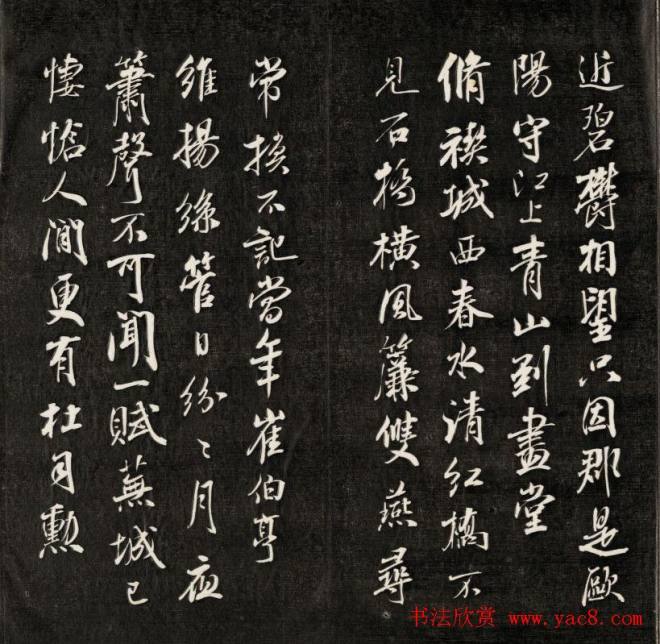 近碧鬱相望只因郡是歐
陽守江上青山到畫堂
脩禊城西春水清紅橋不
見石橋橫風簾雙燕尋
常捱不記當年崔伯亭
維揚絲管日紛〻月夜
簫聲不可聞一賦蕪城已
悽愴人間更有杜司勲
书法欣赏 www.yac8.com